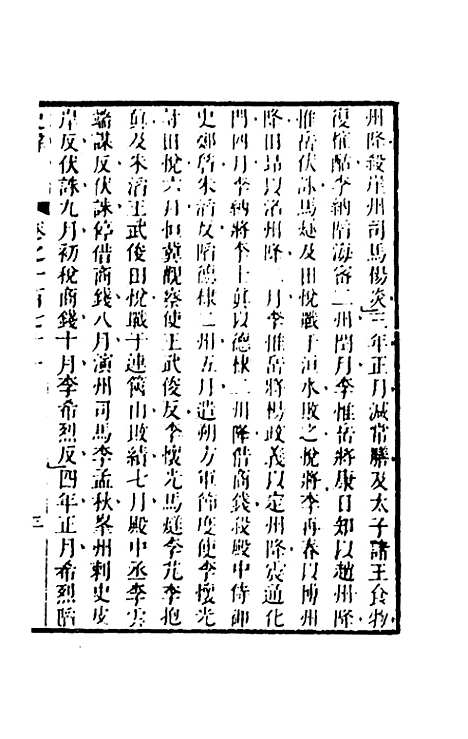 州降殺崖州司馬楊炎三年正月減常膳及太子諸王食物
復榷酤李納陷海密二州閏月李惟岳將康日知以趙州降
惟岳伏誅馬燧及田悅戰于洹水敗之悅將李再春以博州
降田昂以洺州降二月李惟岳將楊政義以定州降震通化
門四月李納將李士眞以德棣二州降借商錢殺殿中侍御
史鄭詹朱滔反陷德棣二州五月遣朔方軍節度使李懷光
討田悅六月恒冀觀察使王武俊反李懷光馬燧李芃李抱
眞及朱滔王武俊田悅戰于連篋山敗績七月殿中丞李雲
端謀反伏誅停借商錢八月演州司馬李孟秋峯州刺史皮
岸反伏誅九月初稅商錢十月李希烈反四年正月希烈陷
三